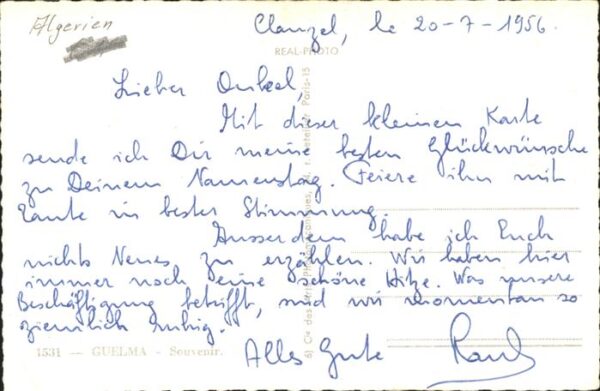 Algerien
Clauzel, le 20-7-1956.
REAL-PHOTO
Lieber Onkel,
Mit dieser kleinen Karte
sende ich Dir meine besten Glückwünsche
zu Deinem Namenstag. Feiere ihn mit
Tante in bester Stimmung.
Ausserdem habe ich Euch
nichts Neues zu erzählen. Wir haben hier
immer noch eine schöne Hitze. Was unsere
Beschäftigung betrifft, sind wir momentan so
ziemlich ruhig.
1531 - GUELMA - Souvenir.
Alles Gute
Paris-15